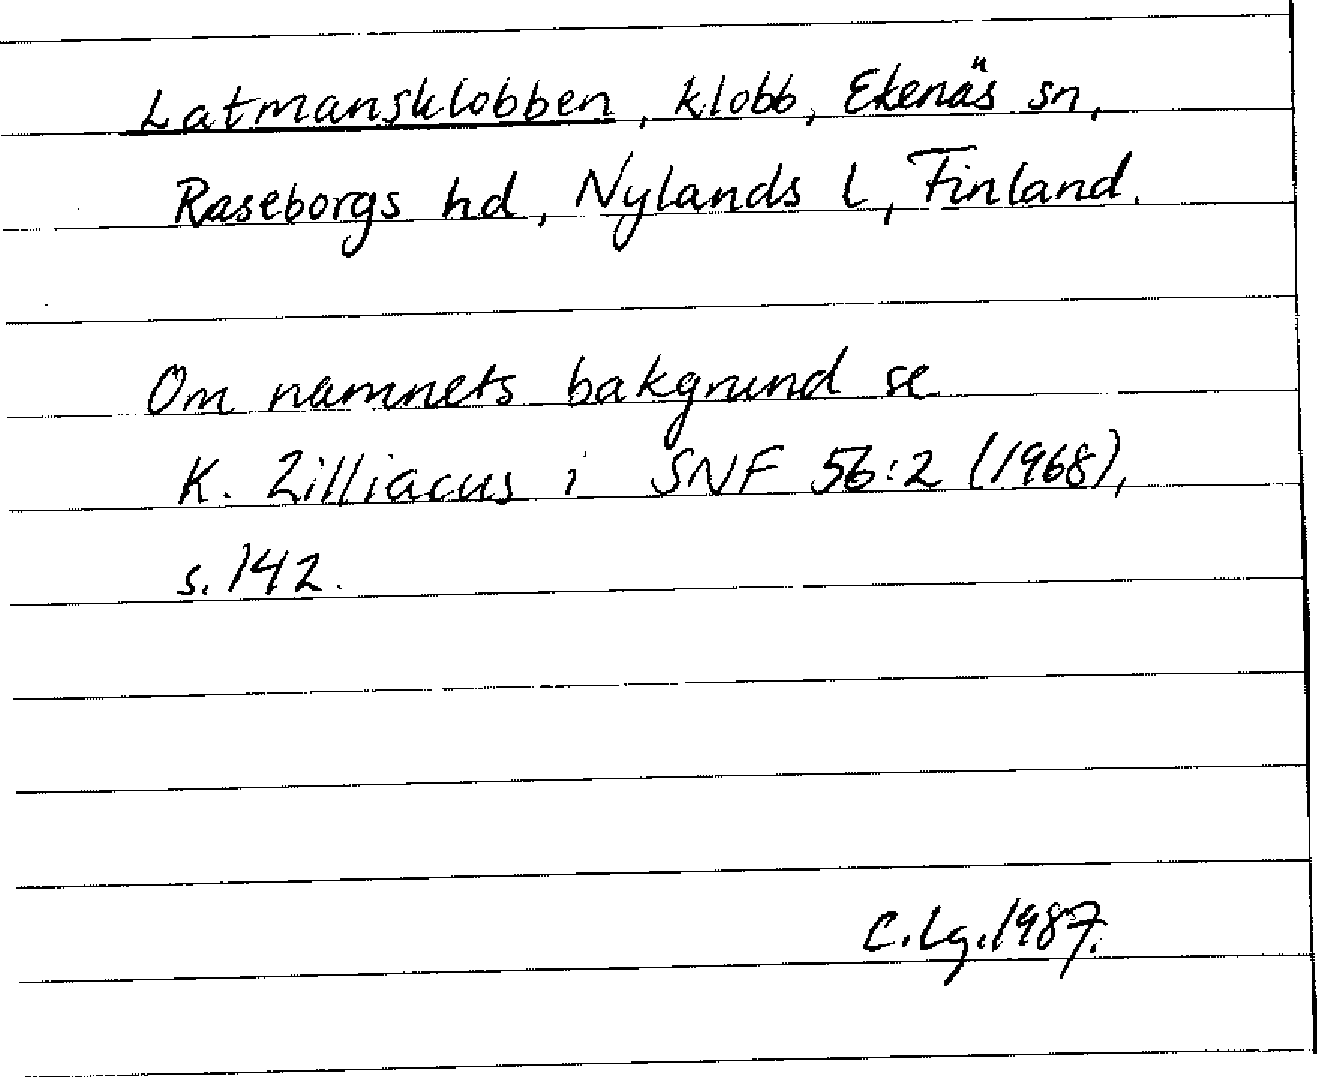 Latmansklobben, klobb, Ekenäs sn,
Raseborgs hd, Nylands l, Finland.
Om namnets bakgrund se
K. Zilliacus i SNF 56:2 (1968),
s. 142.
C.Lg.1987.